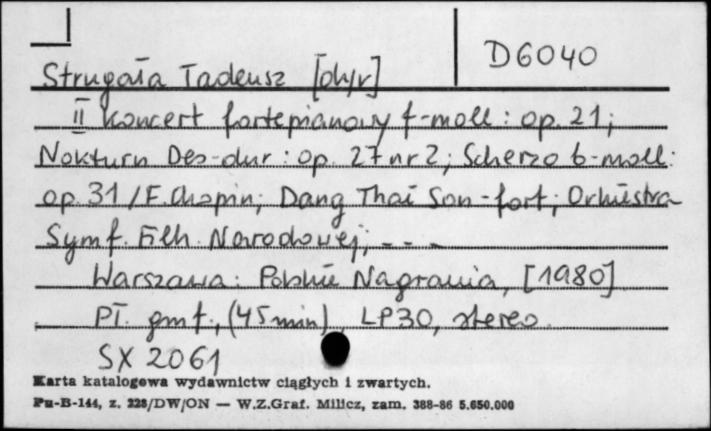 D6040
Strugała Tadeusz [dyr]
II Koncert fortepianowy f-moll : op. 21;
Nokturn Des-dur : op. 27 nr 2; Scherzo b-moll :
op. 31 / F. Chopin; Dang Thai Son - fort; Orkiestra
Symf. Filh. Narodowej; - - -
Warszawa : Polskie Nagrania, [1980]
Pł. gmf., (45 min), LP30, stereo
SX 2061
Karta katalogowa wydawnictw ciągłych i zwartych.
Pu-B-144, z. 228/DW/ON — W.Z.Graf. Milicz, zam. 388-86 5.650.000